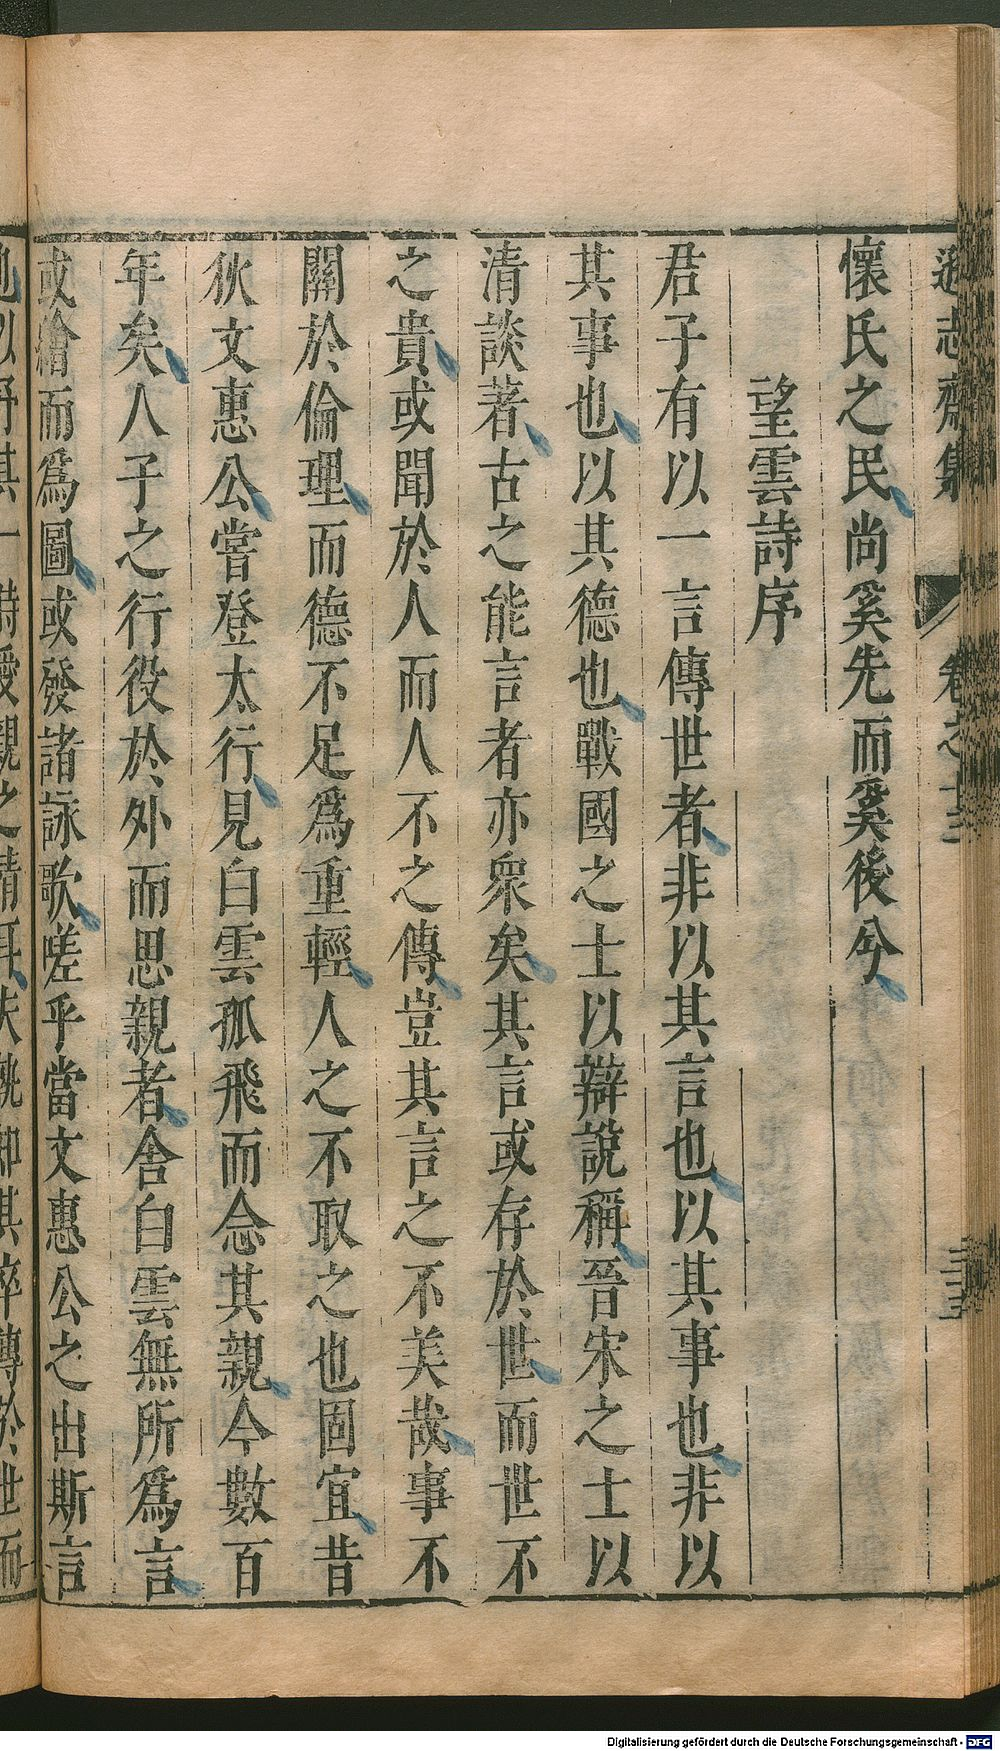 遜志齋集 卷之十三
懷氏之民尚奚先而奚後兮
望雲詩序
君子有以一言傳世者非以其言也以其事也非以
其事也以其德也戰國之士以辯說稱晉宋之士以
清談著古之能言者亦衆矣其言或存於世而世不
之貴或聞於人而人不之傳豈其言之不美哉事不
關於倫理而德不足爲重輕人之不取之也固宜昔
狄文惠公嘗登太行見白雲孤飛而念其親今數百
年矣人子之行役於外而思親者舍白雲無所爲言
或繪而爲圖或發諸詠歌嗟乎當文惠公之出斯言
也以紓其一時愛親之情耳夫孰知其卒傳於世而
Digitalisierung gefördert durch die Deutsche Forschungsgemeinschaft - DFG